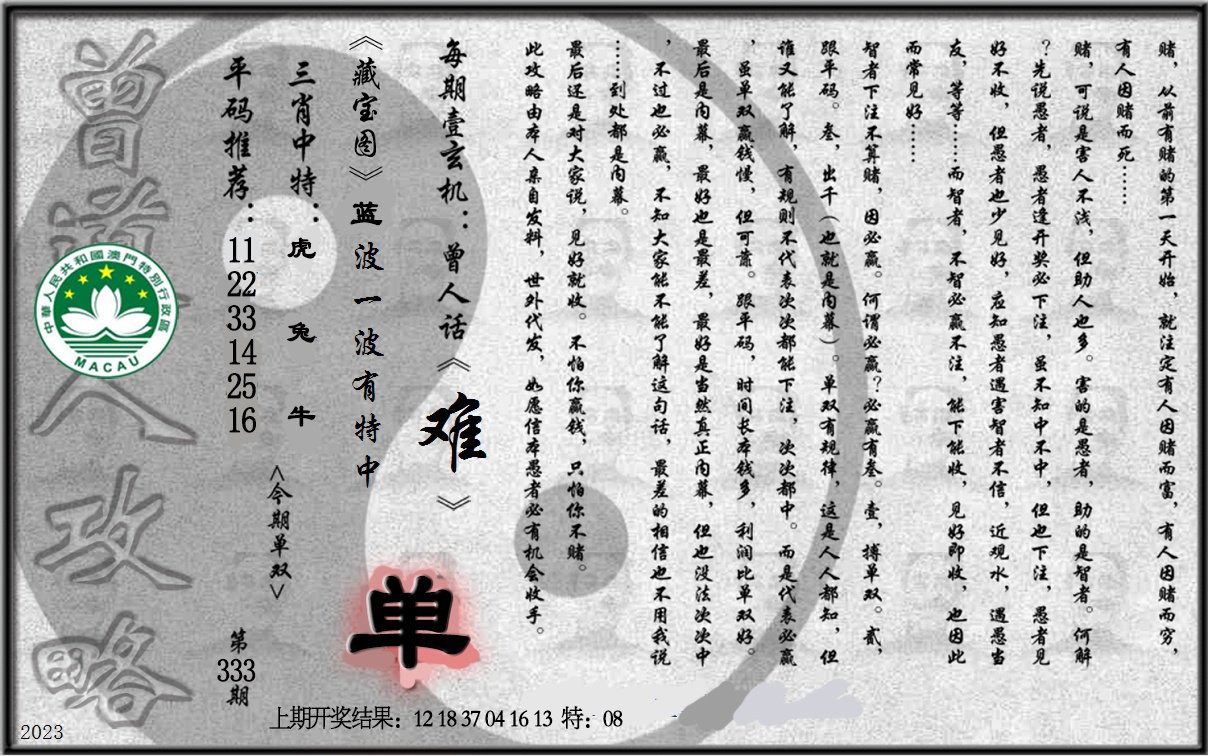 赌，从前有赌的第一天开始，就注定有人因赌而富，有人因赌而穷，
有人因赌而死……
赌，可说是害人不浅，但助人也多。害的是愚者，助的是智者。何解
？先说愚者，愚者逢开奖必下注，虽不知中不中，但也下注，愚者见
好不收，但愚者也少见好，应知愚者遇害智者不信，近观水，遇愚当
友，等等……而智者，不智必赢不注，能下能收，见好即收，也因此
而常见好……
智者下注不算赌，因必赢。何谓必赢？必赢有叁。壹，搏单双。贰，
跟平码。叁，出千（也就是内幕）。单双有规律，这是人人都知，但
谁又能了解，有规则不代表次次都能下注，次次都中。而是代表必赢
，虽单双赢钱慢，但可靠。跟平码，时间长本钱多，利润比单双好。
最后是内幕，最好也是最差，最好是当然真正内幕，但也没法次次中
，不过也必赢，不知大家能不能了解这句话，最差的相信也不用我说
……到处都是内幕。
最后还是对大家说，见好就收。不怕你赢钱，只怕你不赌。
此攻略由本人亲自发料，世外代发，如愿信本愚者必有机会收手。
每期壹玄机：曾人话《难》
《藏宝图》蓝波一波有特中
三肖中特：虎 兔 牛
平码推荐：
11
22
33
14
25
16
<今期单双>
单
第
333
期
曾道人攻略
中華人民共和國澳門特別行政區
MACAU
上期开奖结果：12 18 37 04 16 13 特：08
2023